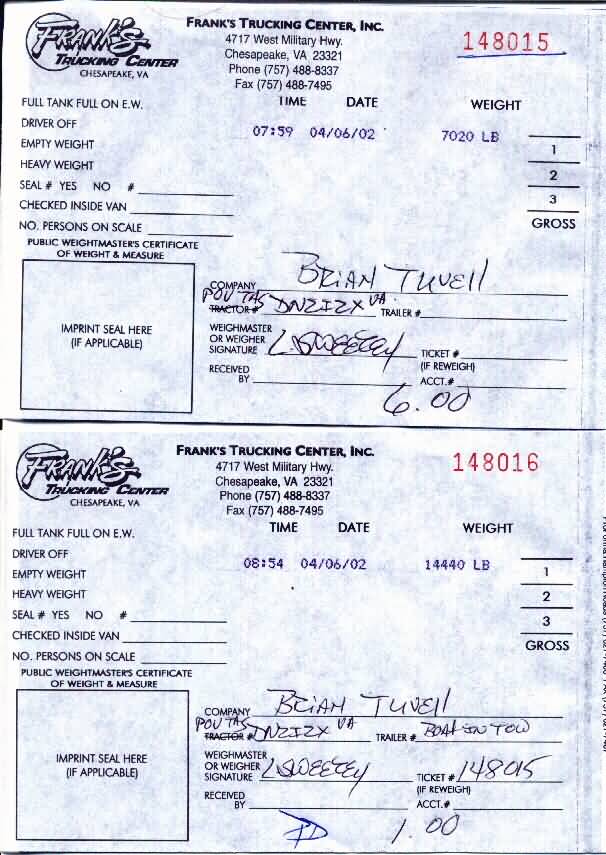 FRANK'S
TRUCKING CENTER
CHESAPEAKE, VA
FRANK'S TRUCKING CENTER, INC.
4717 West Military Hwy.
Chesapeake, VA 23321
Phone (757) 488-8337
Fax (757) 488-7495
148015
FULL TANK FULL ON E.W.
TIME DATE WEIGHT
DRIVER OFF
07:59 04/06/02 7020 LB
EMPTY WEIGHT
1
HEAVY WEIGHT
2
SEAL # YES NO #
3
CHECKED INSIDE VAN
GROSS
NO. PERSONS ON SCALE
PUBLIC WEIGHTMASTER'S CERTIFICATE
OF WEIGHT & MEASURE
IMPRINT SEAL HERE
(IF APPLICABLE)
COMPANY BRIAN TUVELL
POV TAS
TRACTOR # DNZIZX VA TRAILER #
WEIGHMASTER
OR WEIGHER
SIGNATURE L SWEETEY TICKET #
(IF REWEIGH)
RECEIVED
BY ACCT.#
6.00
FRANK'S
TRUCKING CENTER
CHESAPEAKE, VA
FRANK'S TRUCKING CENTER, INC.
4717 West Military Hwy.
Chesapeake, VA 23321
Phone (757) 488-8337
Fax (757) 488-7495
148016
FULL TANK FULL ON E.W.
TIME DATE WEIGHT
DRIVER OFF
08:54 04/06/02 14440 LB
EMPTY WEIGHT
1
HEAVY WEIGHT
2
SEAL # YES NO #
3
CHECKED INSIDE VAN
GROSS
NO. PERSONS ON SCALE
PUBLIC WEIGHTMASTER'S CERTIFICATE
OF WEIGHT & MEASURE
IMPRINT SEAL HERE
(IF APPLICABLE)
COMPANY BRIAN TUVELL
POV TAS
TRACTOR # DNZIZX VA TRAILER # BOAT IN TOW
WEIGHMASTER
OR WEIGHER
SIGNATURE L SWEETEY TICKET # 148015
(IF REWEIGH)
RECEIVED
BY ACCT.#
PD 1.00